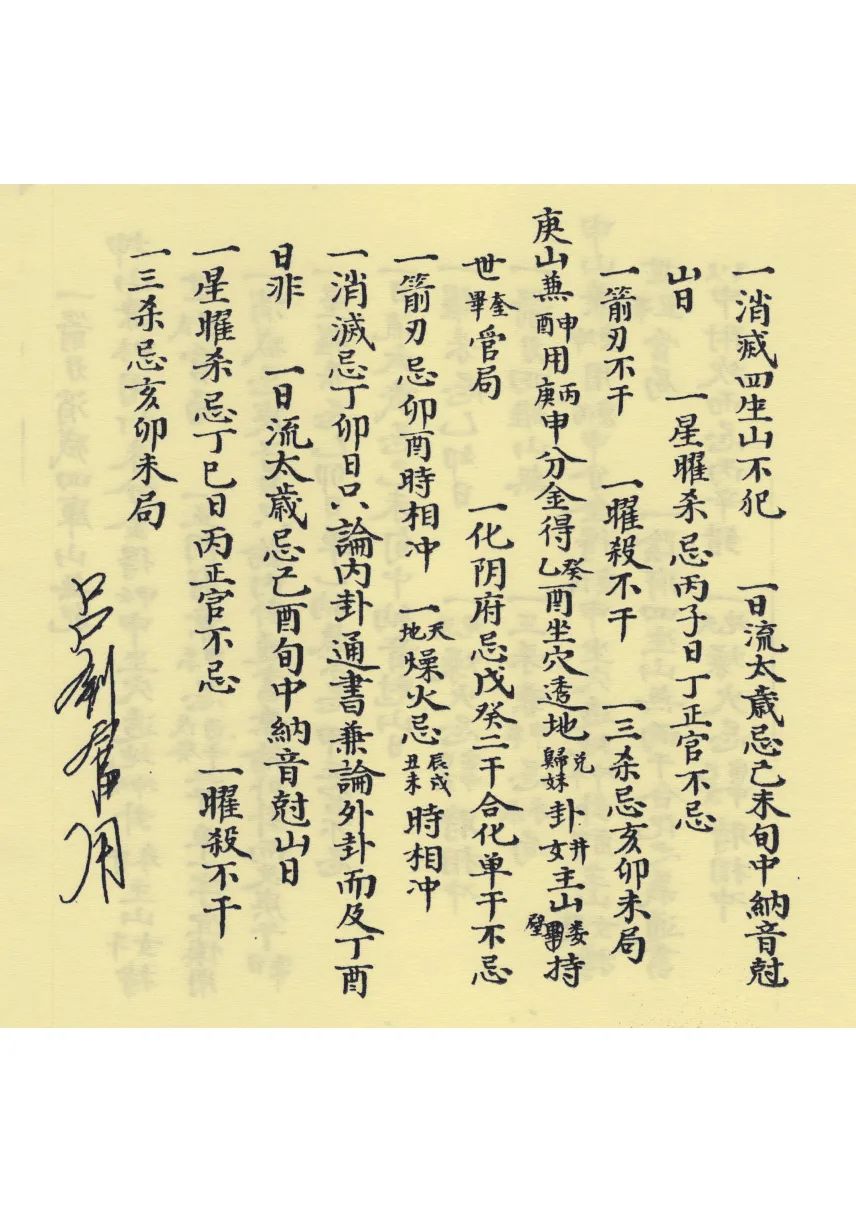 一消滅四生山不犯　一日流太歲忌己未旬中納音尅
山日　一星曜杀忌丙子日丁正官不忌
一箭刃不干　一曜殺不干　一三杀忌亥卯未局
庚山兼申酉用丙庚申分金得癸乙酉坐穴透地兑歸妹卦井女主山娄壁持
世奎畢管局　一化阴府忌戊癸二干合化单干不忌
一箭刃忌卯酉時相冲　一天地燥火忌辰戌丑未時相冲
一消滅忌丁卯日只論内卦通書兼論外卦而及丁酉
日非　一日流太歲忌己酉旬中納音尅山日
一星曜杀忌丁巳日丙正官不忌　一曜殺不干
一三杀忌亥卯未局